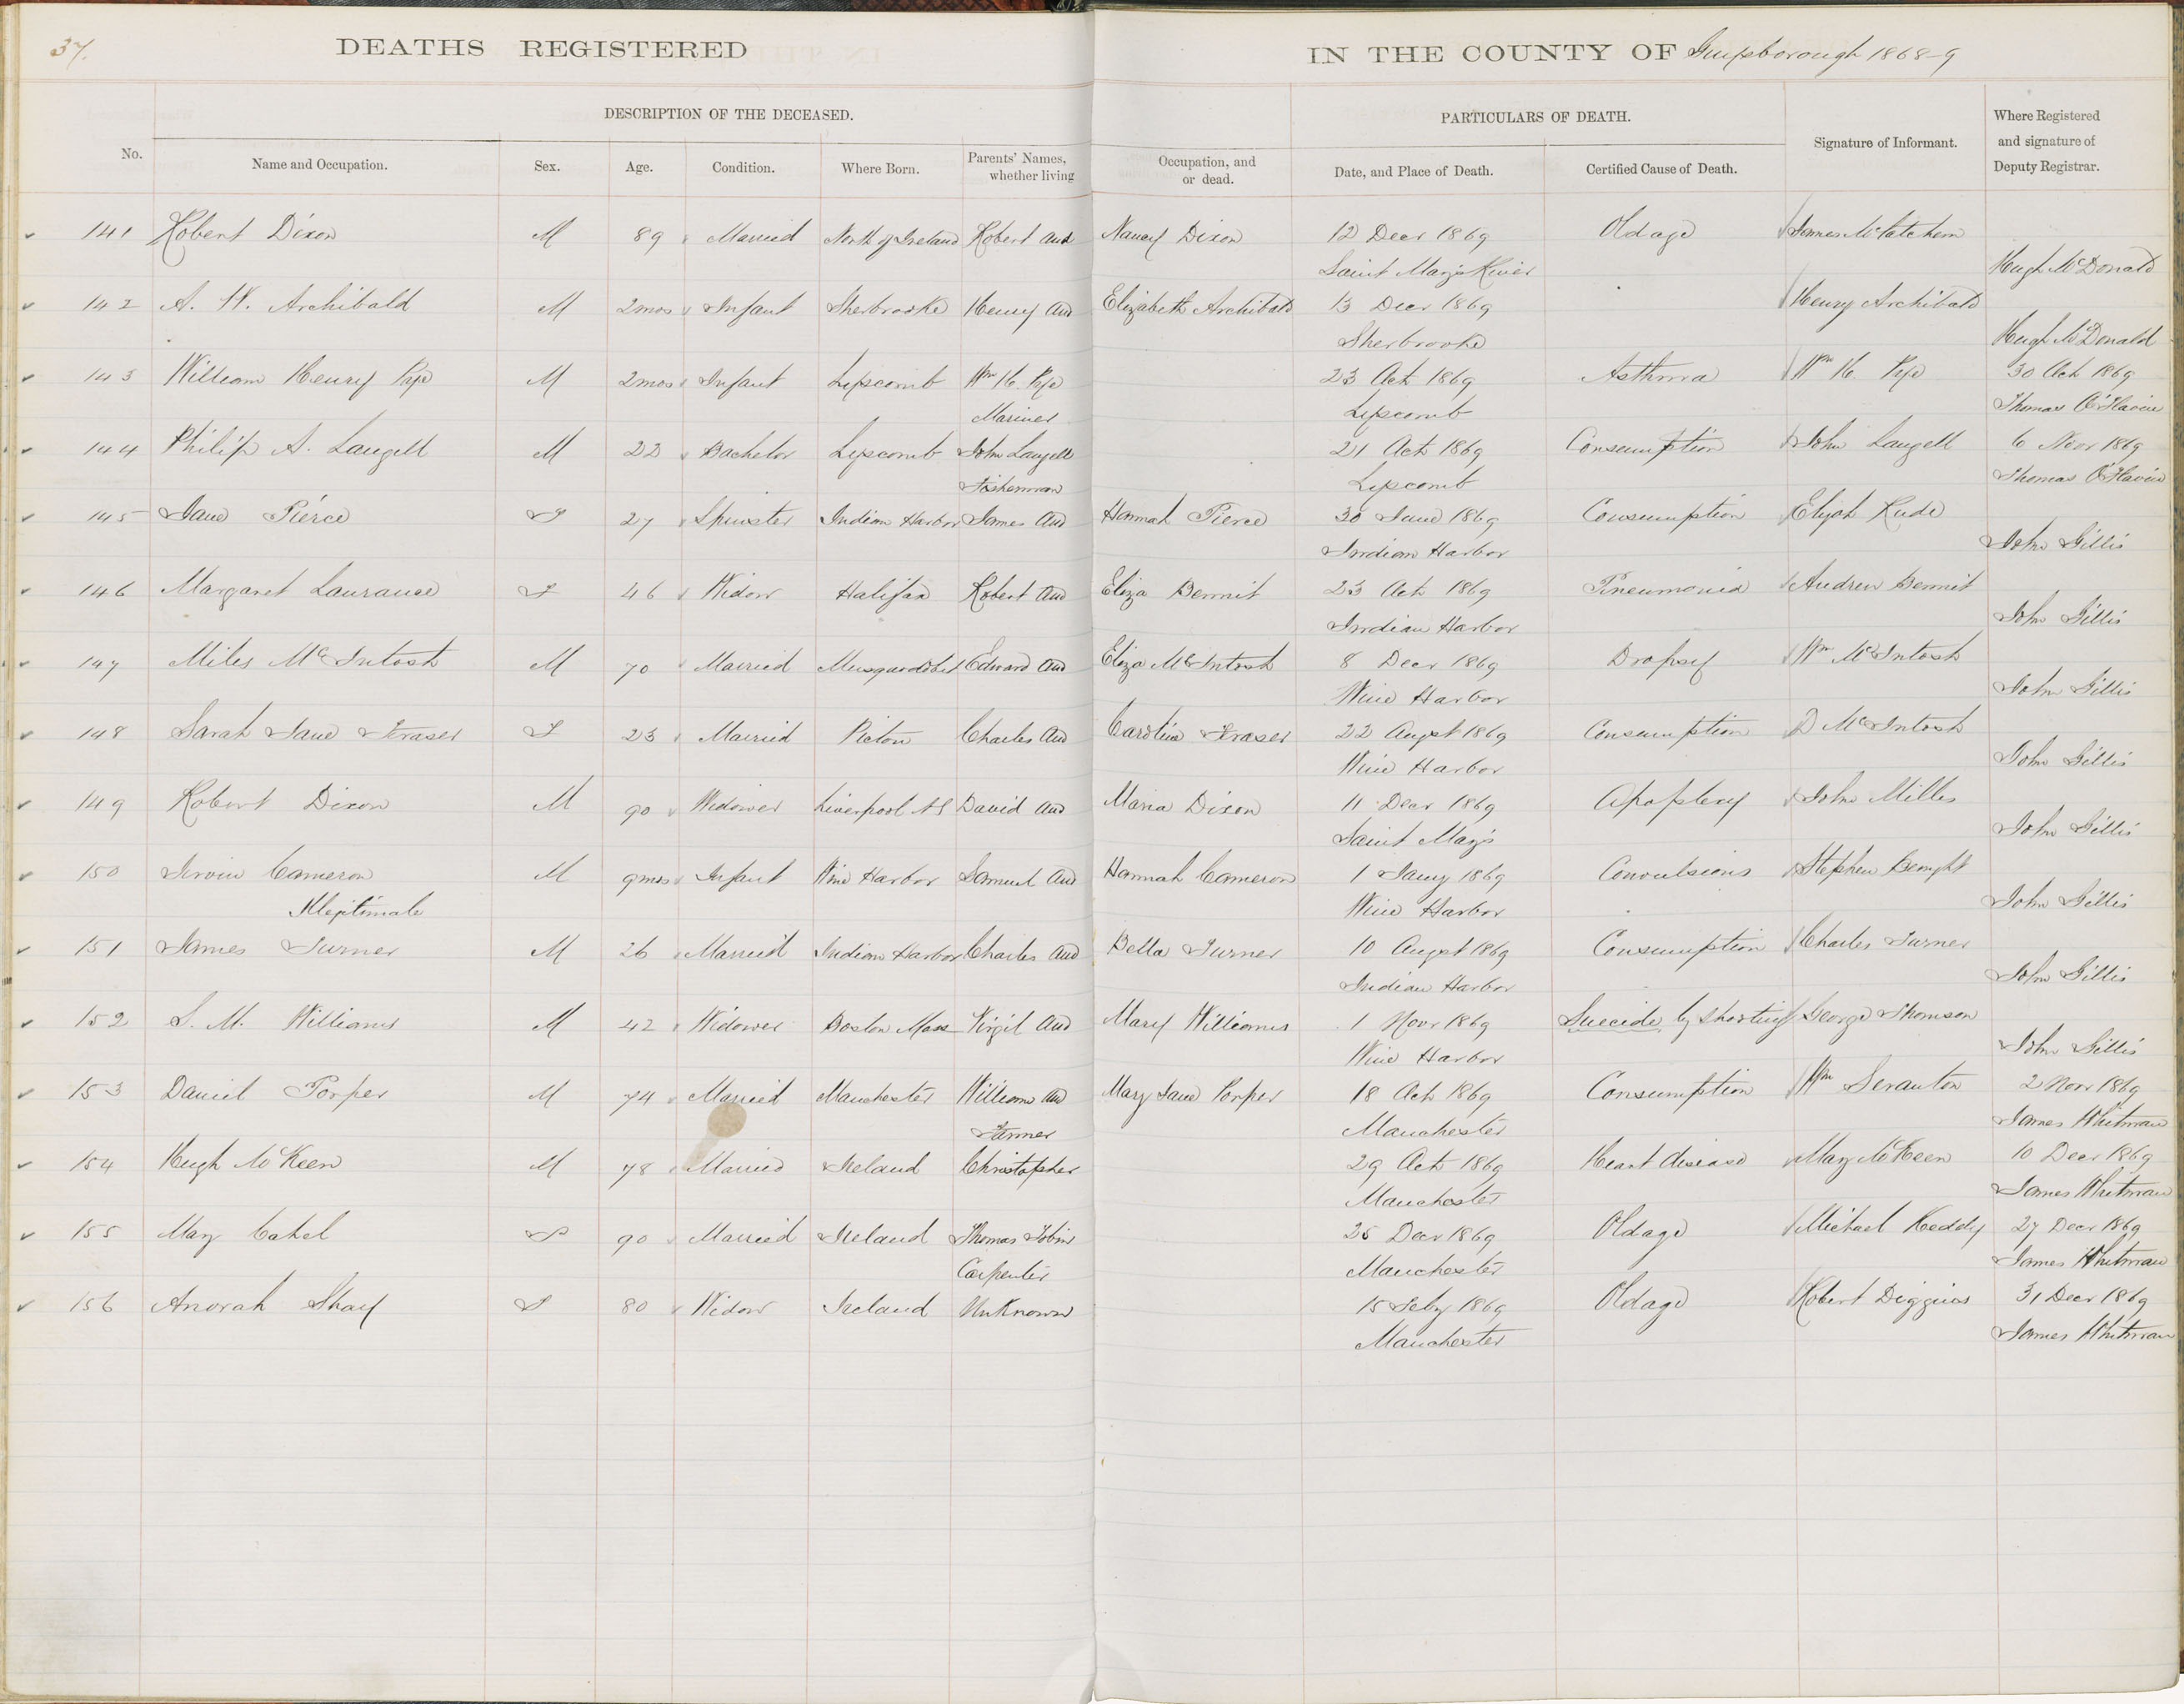 37.
DEATHS REGISTERED IN THE COUNTY OF Guysborough 1868-9
DESCRIPTION OF THE DECEASED. PARTICULARS OF DEATH.
No. Name and Occupation. Sex. Age. Condition. Where Born. Parents' Names, whether living Occupation, and or dead. Date, and Place of Death. Certified Cause of Death. Signature of Informant. Where Registered and signature of Deputy Registrar.
141 Robert Dixon M 89 Married North of Ireland Robert and Nancy Dixon 12 Decr 1869 Old age James McCutchem
Saint Mary's River Hugh McDonald
142 A. W. Archibald M 2mos Infant Sherbrooke Henry and Elizabeth Archibald 13 Decr 1869 Henry Archibald
Sherbrooke Hugh McDonald
143 William Henry Pye M 2mos Infant Lipscomb Wm H. Pye 23 Oct 1869 Asthma Wm H Pye 30 Oct 1869
Mariner Lipscomb Thomas O'Flavin
144 Philip A. Langell M 22 Bachelor Lipscomb John Langell 21 Oct 1869 Consumption John Langell 6 Novr 1869
Fisherman Lipscomb Thomas O'Flavin
145 Jane Pierce F 27 Spinster Indian Harbor James and Hannah Pierce 30 June 1869 Consumption Elijah Rude
Indian Harbor John Gillis
146 Margaret Laurance F 46 Widow Halifax Robert and Eliza Bennit 23 Oct 1869 Pneumonia Andrew Bennit
Indian Harbor John Gillis
147 Miles McIntosh M 70 Married Musquodobit Edward and Eliza McIntosh 8 Decr 1869 Dropsy Wm McIntosh
Wine Harbor John Gillis
148 Sarah Jane Fraser F 23 Married Pictou Charles and Caroline Fraser 22 Augst 1869 Consumption D McIntosh
Wine Harbor John Gillis
149 Robert Dixon M 90 Widower Liverpool NS David and Maria Dixon 11 Decr 1869 Apoplexy John Milles
Saint Mary's John Gillis
150 Irvin Cameron M 9mos Infant Wine Harbor Samuel and Hannah Cameron 1 Jany 1869 Convulsions Stephen
Illegitimate Wine Harbor John Gillis
151 James Turner M 26 Married Indian Harbor Charles and Bella Turner 10 Augst 1869 Consumption Charles Turner
Indian Harbor John Gillis
152 S. M. Williams M 42 Widower Boston Mass Virgil and Mary Williams 1 Novr 1869 Suecide by shooting George Thomson
Wine Harbor John Gillis
153 Daniel Porper M 74 Married Manchester William and Mary Jane Porper 18 Oct 1869 Consumption Wm Scranton 2 Novr 1869
Farmer Manchester James Whitman
154 Hugh McKeen M 78 Married Ireland Christopher 29 Oct 1869 Heart disease Mary McKeen 10 Decr 1869
Manchester James Whitman
155 Mary Cahel F 90 Married Ireland Thomas Tobin 25 Decr 1869 Old age Michael Keddy 27 Decr 1869
Carpenter Manchester James Whitman
156 Anorah Shay F 80 Widow Ireland Unknown 15 Feby 1869 Old age Robert Diggins 31 Decr 1869
Manchester James Whitman